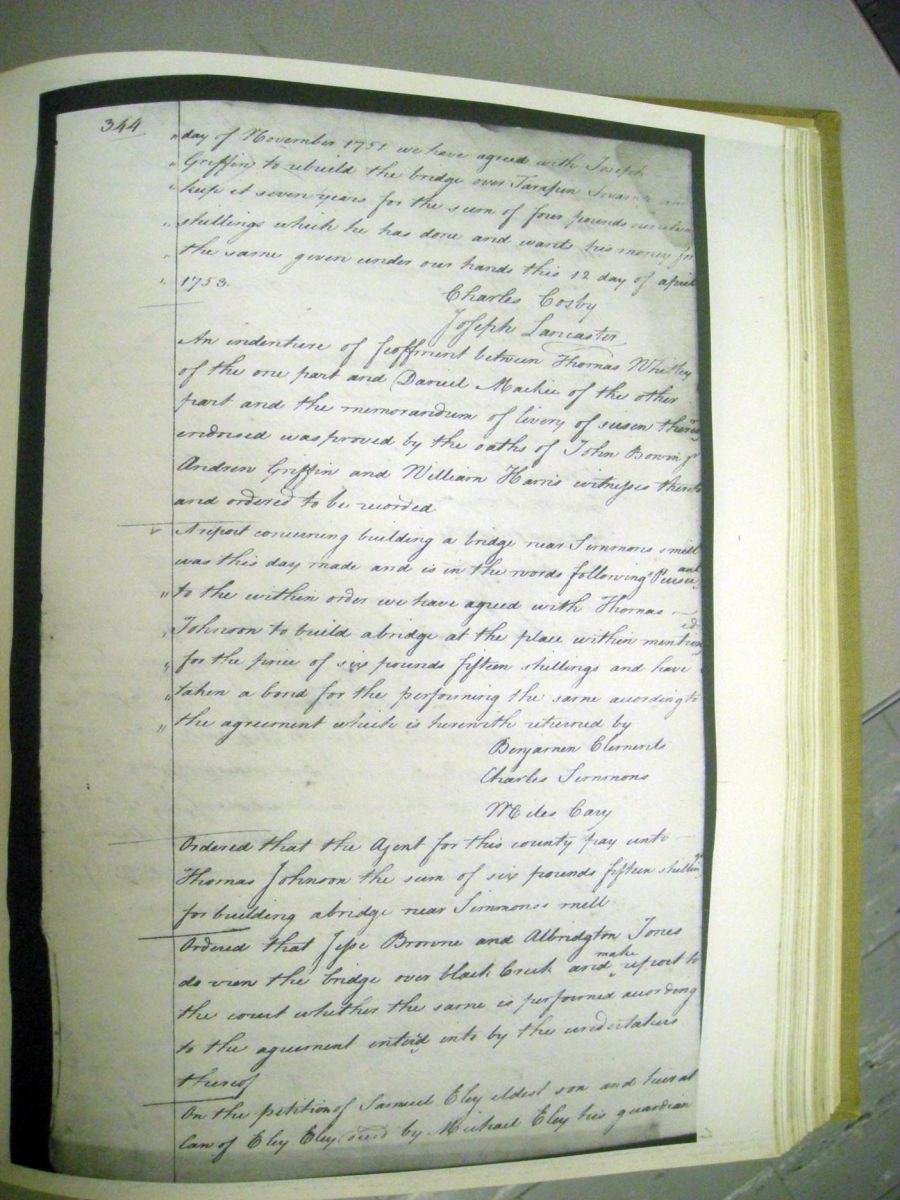 344
" day of November 1751 we have agreed with Joseph
" Griffin to rebuild the bridge over Tarapin Swamp and
" keep it seven years for the sum of four pounds
" shillings which he has done and wants his money for
" the same given under our hands this 12 day of april
" 1753.
Charles Cosby
Joseph Lancaster
An indenture of feoffment between Thomas Whitley
of the one part and Daniel Mackie of the other
part and the memorandum of livery of seisen thereon
endorsed was proved by the oaths of John Bowin jr
Andrew Griffin and William Harris witnesses thereto
and ordered to be recorded
A report concerning building a bridge near Simmons's mill
was this day made and is in the words following "Pursuant
" to the within order we have agreed with Thomas
" Johnson to build a bridge at the place within mentioned
" for the price of six pounds fifteen shillings and have
" taken a bond for the performing the same according to
" the agreement which is herewith returned by
Benjamen Clements
Charles Simmons
Miles Cary
Ordered that the Agent for this county pay unto
Thomas Johnson the sum of six pounds fifteen shillings
for building a bridge near Simmonss mill
Ordered that Jesse Browne and Albridgton Jones
do view the bridge over black Creek and make report to
the court whether the same is performed according
to the agreement enter'd into by the undertakers
thereof
On the petition of Samuel Eley eldest son and heir at
Law of Eley Eley dec'd by Michael Eley his guardian